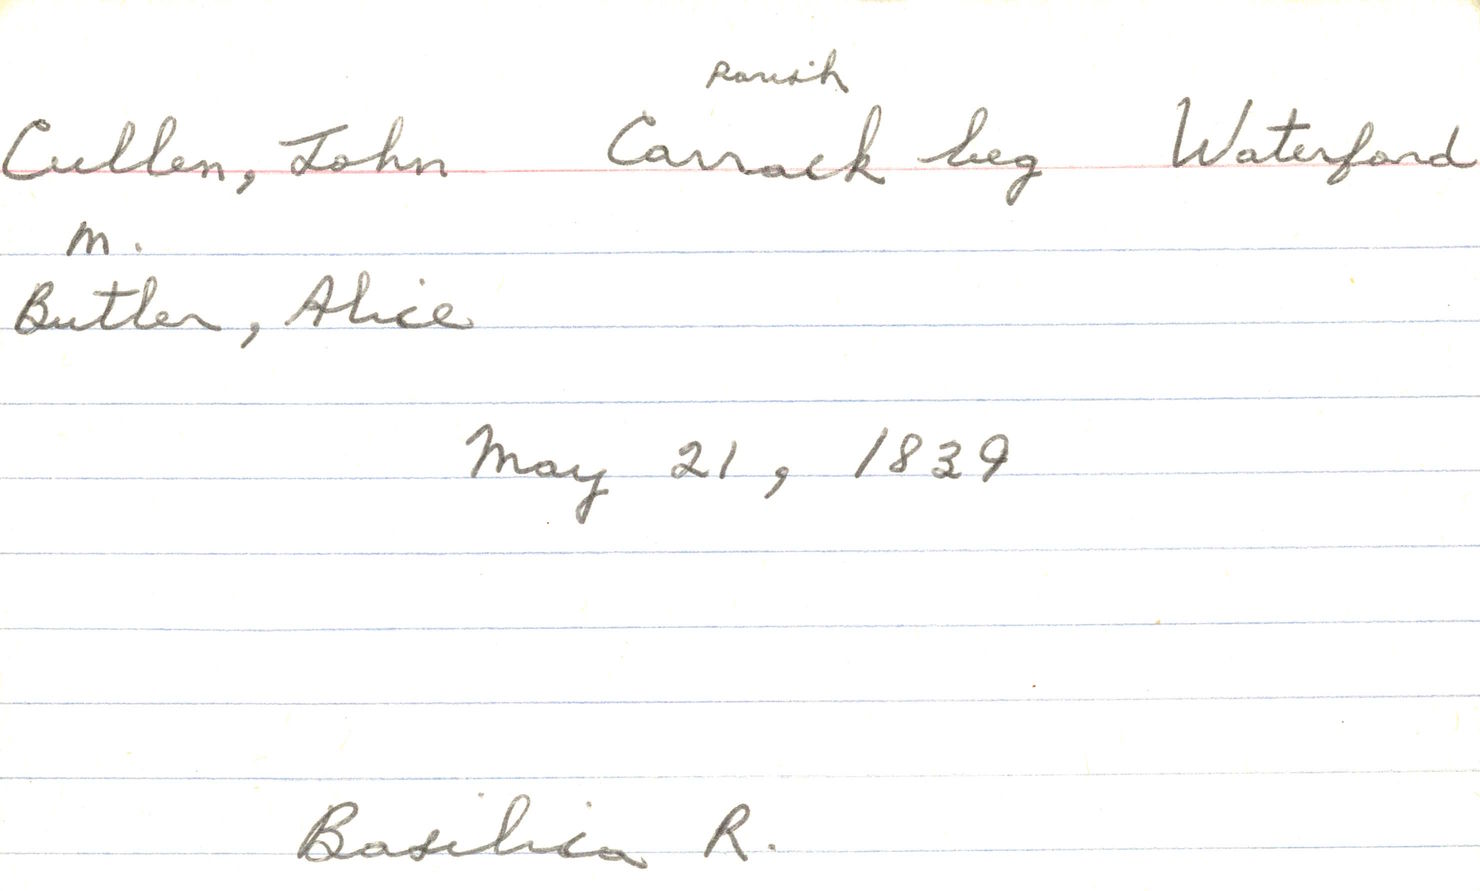 parish
Cullen, John Carrack beg Waterford
m.
Butler, Alice
May 21, 1839
Basilica R.